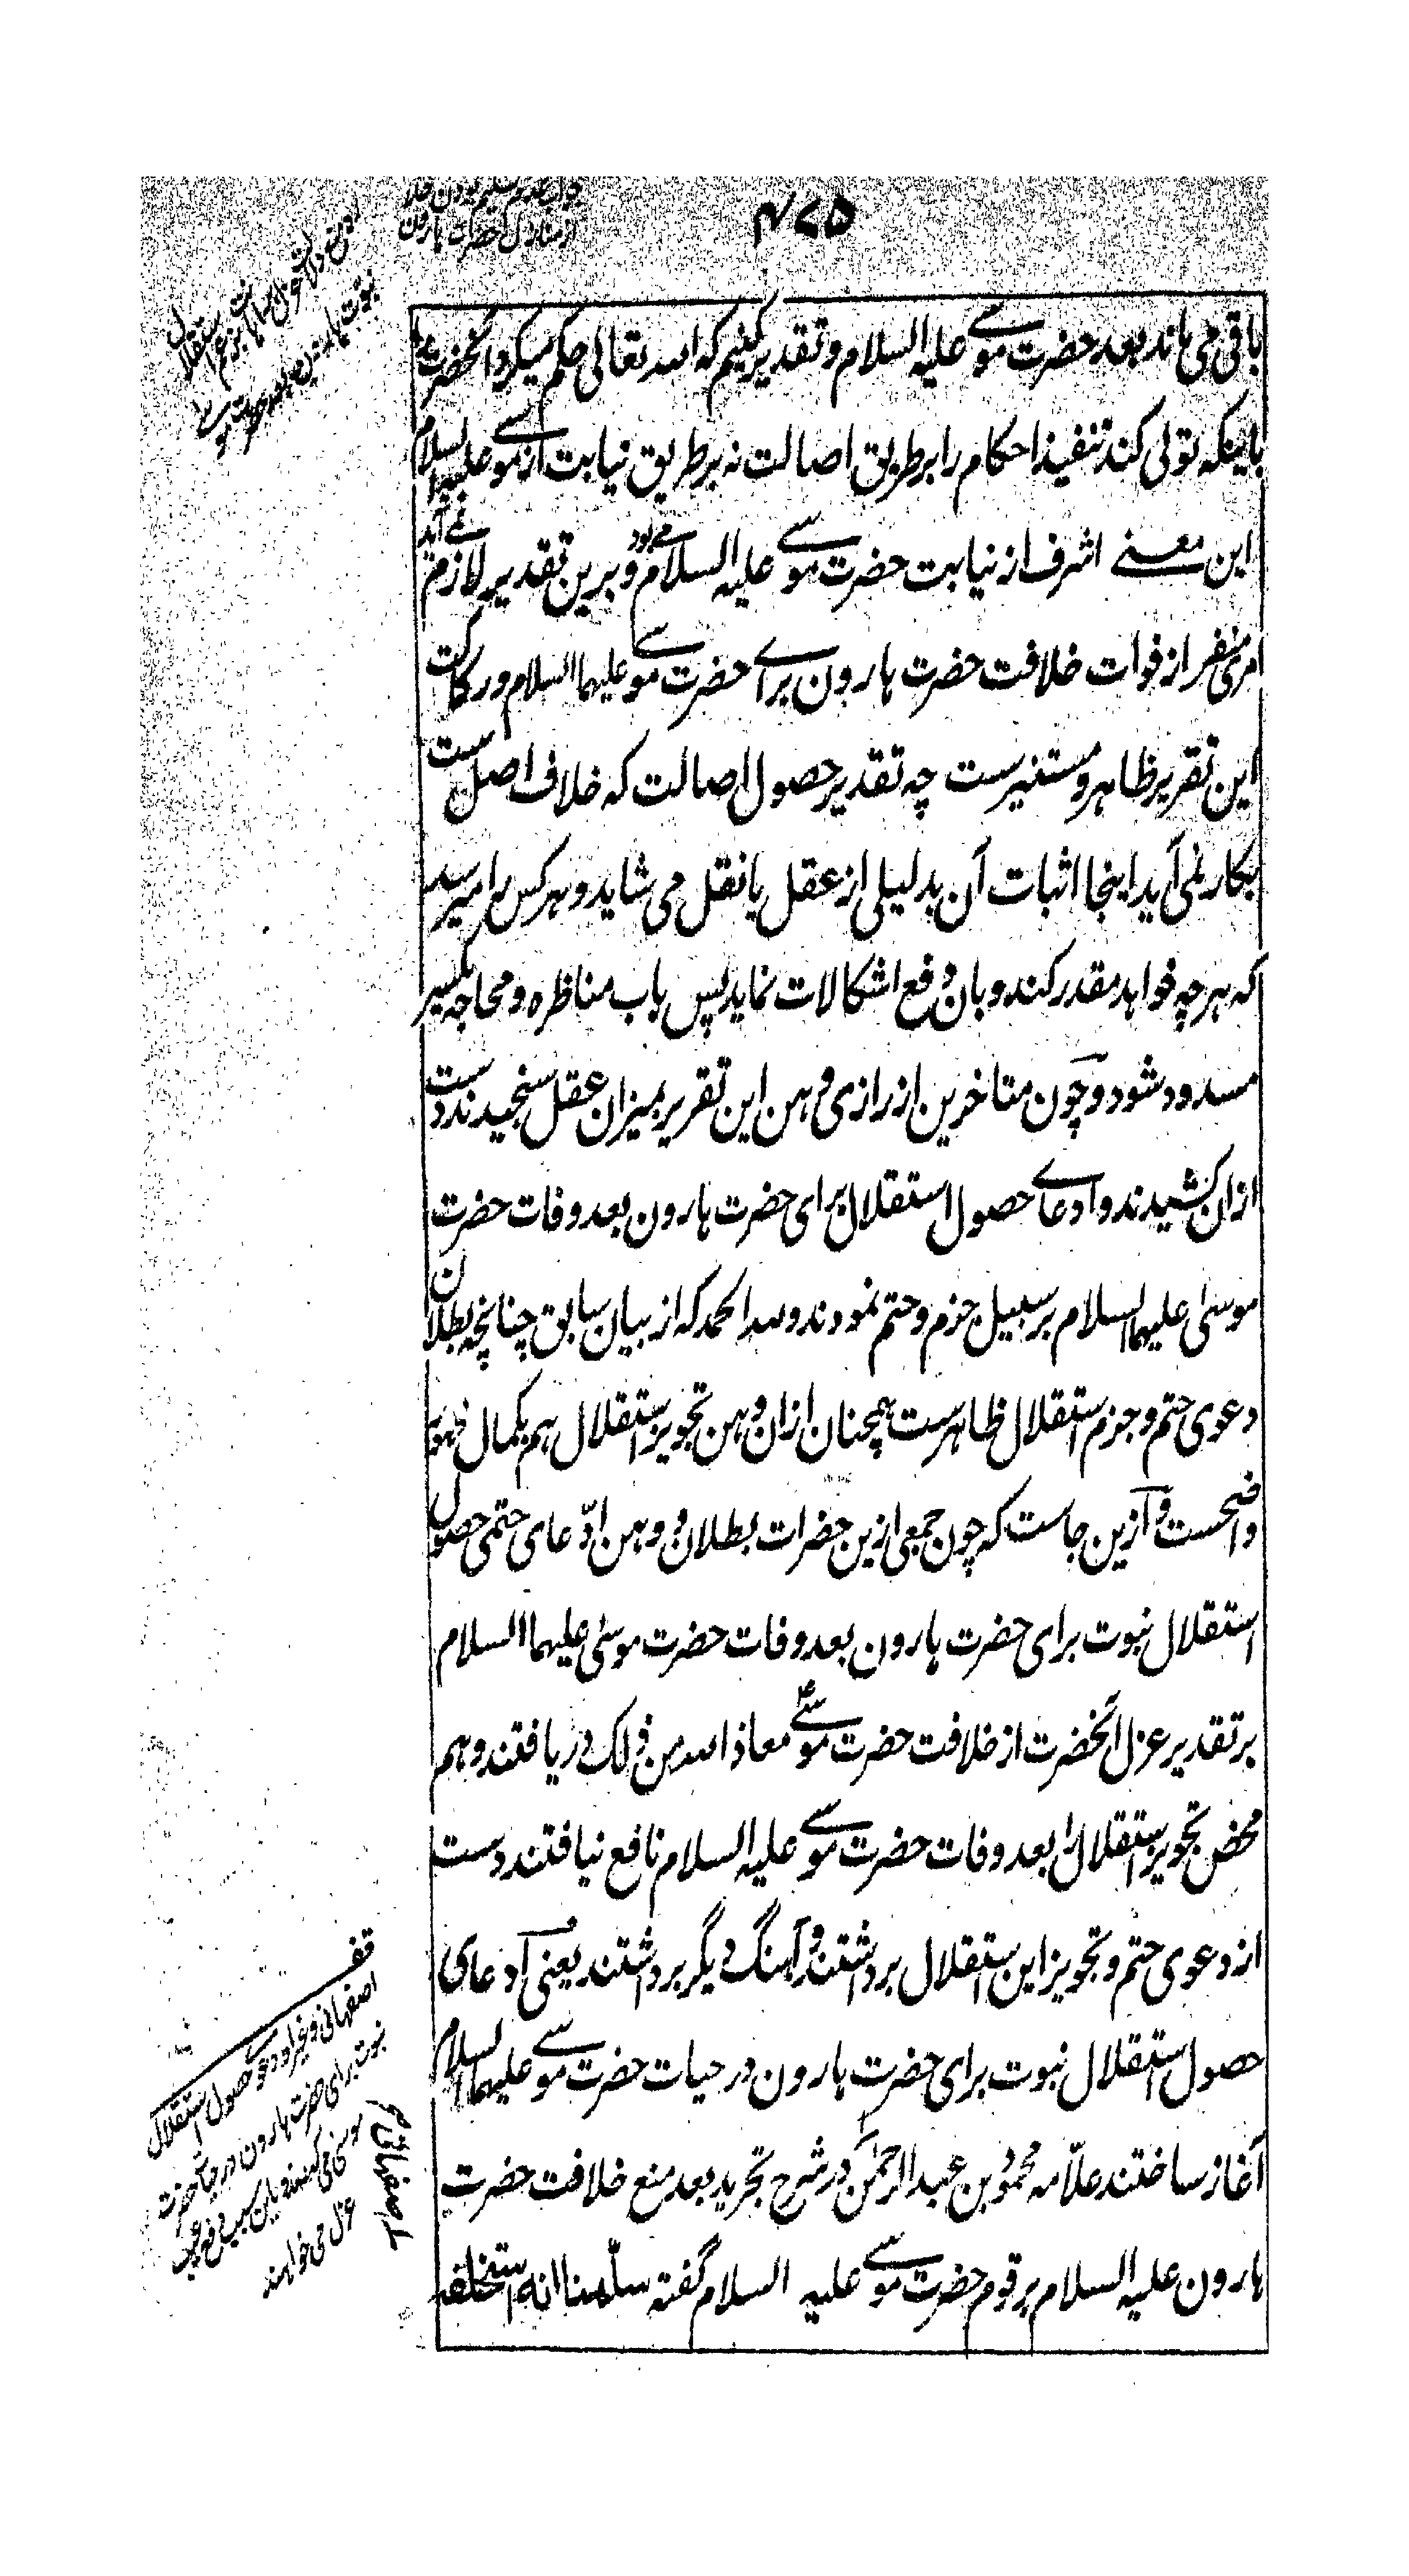 ۴۷۵
باقی می ماند بعد حضرت موسے علیہ السلام و تقدیر کنیم کہ اللہ تعالی حکم میکرد آنحضرت را
باینکہ تولی کند تنفیذ احکام را بر طریق اصالت نہ بر طریق نیابت از موسے علیہ السلام
این معنے اشرف از نیابت حضرت موسے علیہ السلام می بود و برین تقدیر لازم نمے آید
امری منفر از فوات خلافت حضرت ہارون برای حضرت موسے علیہما السلام و رکاکت
این تقریر ظاہر و مستنیرست چہ تقدیر حصول اصالت کہ خلاف اصل ست
بکار نمی آید اینجا اثبات آن بدلیلی از عقل یا نقل می شاید و ہر کس را میرسد
کہ ہر چہ خواہد مقدر کند و بان دفع اشکالات نماید پس باب مناظرہ و محاجہ یکسر
مسدود شود و چون متاخرین از رازی وہن این تقریر بمیزان عقل سنجیدند دست
ازان کشیدند و ادعاے حصول استقلال برای حضرت ہارون بعد وفات حضرت
موسیٰ علیہما السلام بر سبیل جزم و حتم نمودند و للہ الحمد کہ از بیان سابق چنانچہ بطلان
دعوی حتم و جزم استقلال ظاہرست ہمچنان ازان وہن تجویز استقلال ہم بکمال ظہور
واضحست و ازین جاست کہ چون جمعی ازین حضرات بطلان و وہن ادّعای حتمی حصول
استقلال نبوت برای حضرت ہارون بعد وفات حضرت موسیٰ علیہما السلام
بر تقدیر عزل آنحضرت از خلافت حضرت موسےؑ معاذ اللہ من ذلک دریافتند و ہم
محض تجویز استقلال را بعد وفات حضرت موسے علیہ السلام نافع نیافتند دست
از دعوی حتم و تجویز این استقلال برداشتند و آہنگ دیگر برداشتند یعنی ادعای
حصول استقلال نبوت برای حضرت ہارون در حیات حضرت موسے علیہما السلام
آغاز ساختند علّامہ محمود بن عبد الرحمٰن در شرح تجرید بعد منع خلافت حضرت
ہارون علیہ السلام بر قوم حضرت موسے علیہ السلام گفتہ سلّمنا انہ استخلفہ
اصفہانی وغیرہ دعوی حصول استقلال
نبوت برای حضرت ہارون در حیات حضرت
موسیٰ می کنند و باین سبب دفع
عزل می خواہند